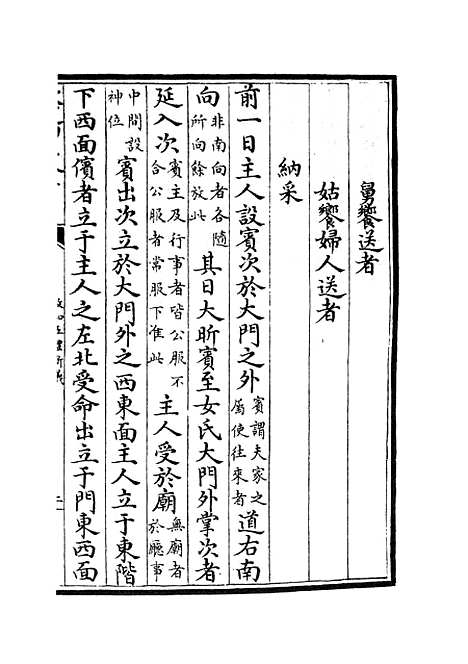 舅饗送者
姑饗婦人送者
納采
前一日主人設賓次於大門之外賓謂夫家之屬使往來者道右南
向非南向者各隨所向餘放此其日大昕賓至女氏大門外掌次者
延入次賓主及行事者皆公服不合公服者常服下准此主人受於廟無廟者於廳事
中間設神位賓出次立於大門外之西東面主人立于東階
下西面儐者立于主人之左北受命出立于門東西面
政和五禮新儀
二